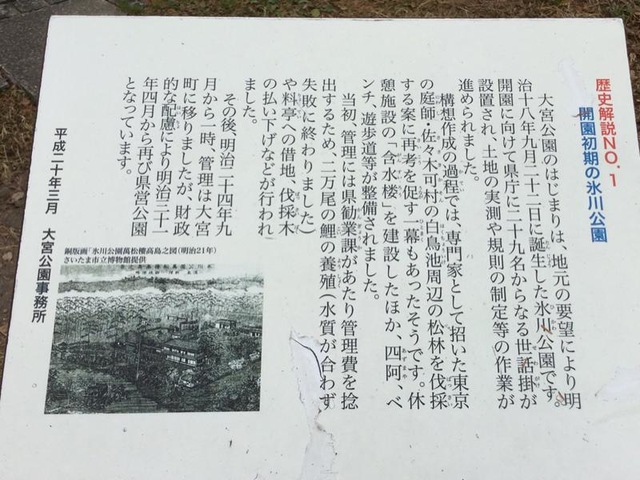 歴史解説NO.1
開園初期の氷川公園
大宮公園のはじまりは、地元の要望により明
治十八年九月二十二日に誕生した氷川公園です。
開園に向けて県庁に二十九名からなる世話掛が
設置され、土地の実測や規則の制定等の作業が
進められました。
構想作成の過程では、専門家として招いた東京
の庭師・佐々木可村の白鳥池周辺の松林を伐採
する案に再考を促す一幕もあったそうです。休
憩施設の「含水楼」を建設したほか、四阿、ベ
ンチ、遊歩道等が整備されました。
当初、管理には県勧業課があたり管理費を捻
出するため、二万尾の鯉の養殖(水質が合わず
失敗に終わりました)や料亭への借地、伐採木
の払い下げなどが行われ
ました。
その後、明治二十四年九
月から一時、管理は大宮
町に移りましたが、財政
的な配慮により明治三十一
年四月から再び県営公園
となっています。
平成二十年三月 大宮公園事務所
銅版画「氷川公園萬松樓高島之図(明治21年)
さいたま市立博物館提供